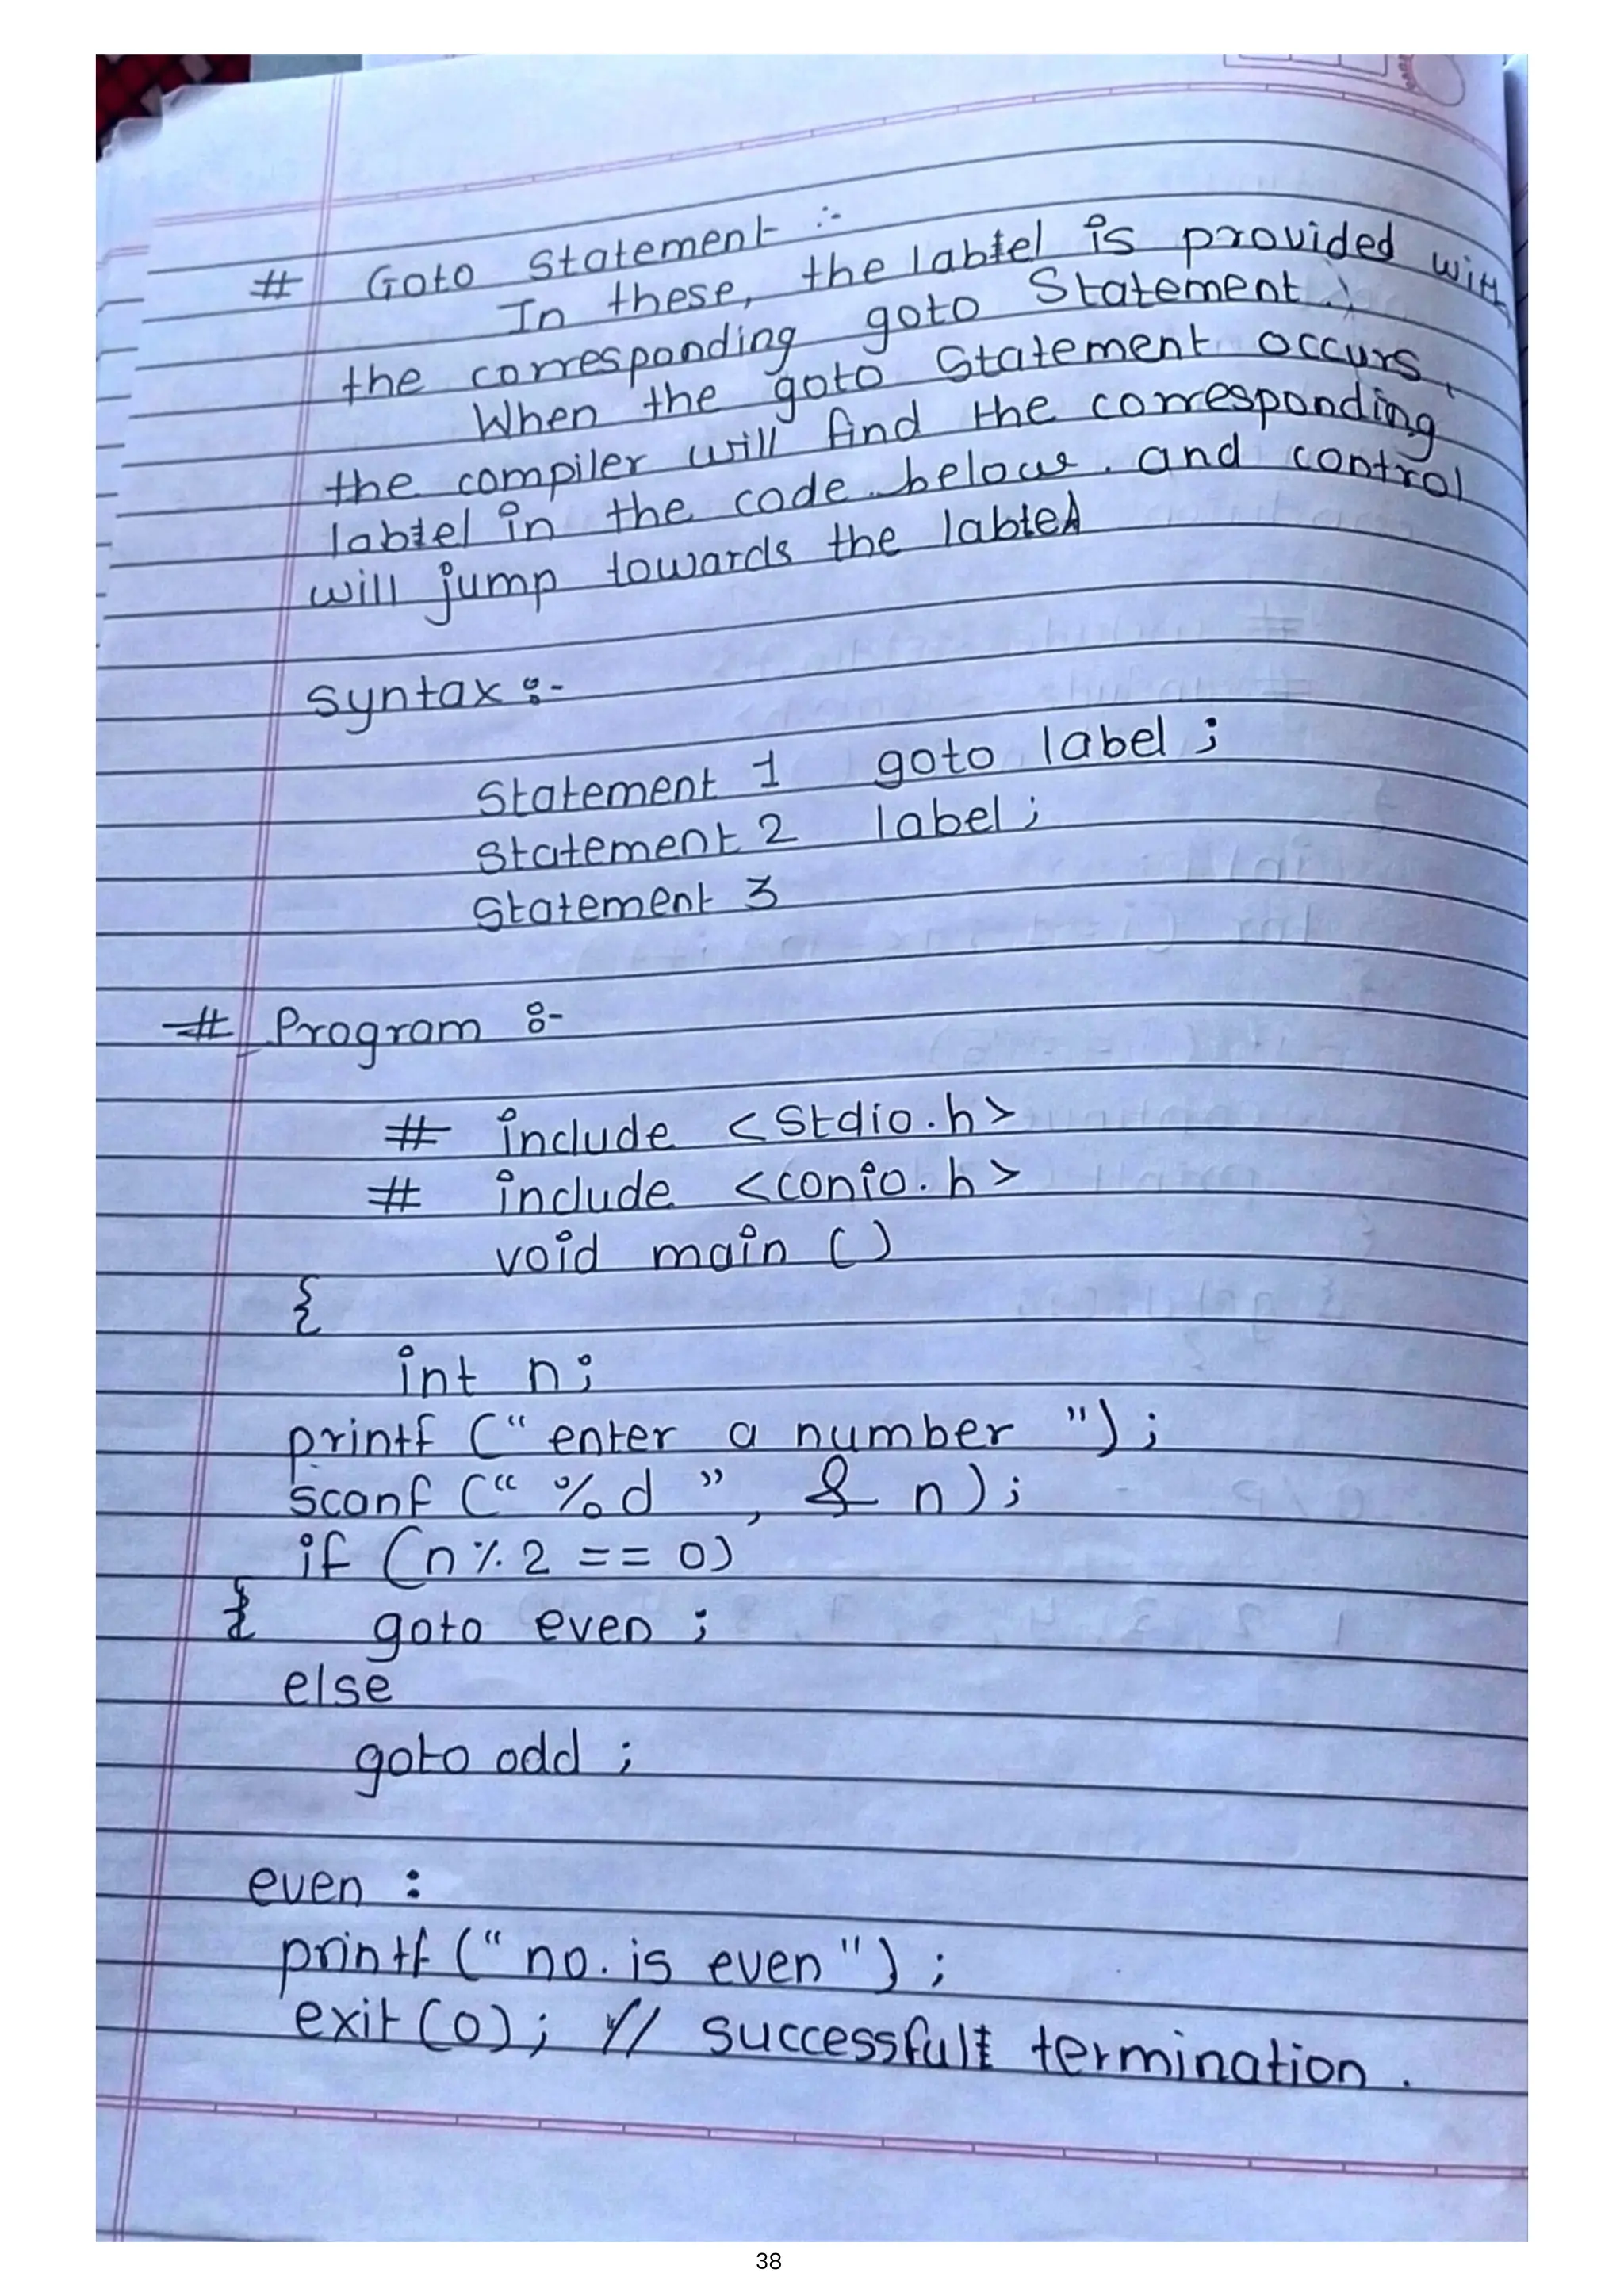 # Goto Statement :-
In these, the labtel is provided with
the corresponding goto Statement.
When the goto Statement occurs,
the compiler will find the corresponding
labtel in the code below. and control
will jump towards the labtel
syntax :-
Statement 1 goto label ;
Statement 2 label ;
Statement 3
# Program :-
# include <Stdio.h>
# include <conio.h>
void main ()
{
int n ;
printf (“ enter a number ”) ;
scanf (“ %d ”, & n) ;
if (n % 2 == 0)
{ goto even ;
else
goto odd ;
even :
printf (“ no. is even ") ;
exit (0) ; // successfult termination .
38